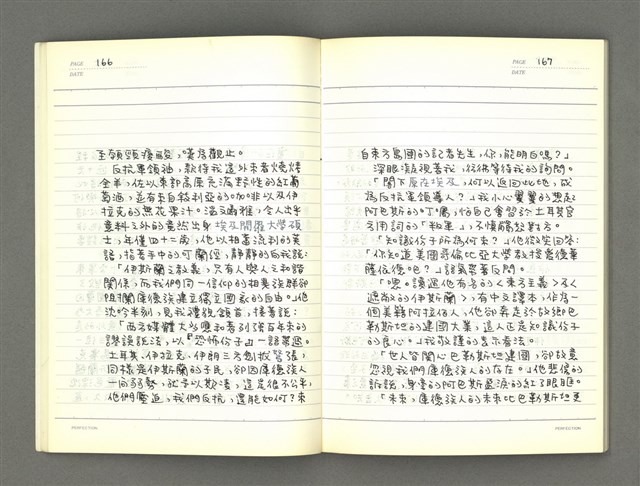 PAGE 166
DATE
至頷頸痠酸，嘆為觀止。
反抗軍領袖，款待我這外來者燒烤
全羊，佐以東部高原充滿野性的紅葡
萄酒，並有來自敘利亞的咖啡以及伊
拉克的無花果汁。溫文爾雅，令人出乎
意料之外的竟然出身埃及開羅大學碩
士，年僅四十二歲，他以相當流利的英
語，指著手中的可蘭經，靜靜的向我說：
「伊斯蘭之教義，只有人與人之和諧
關係，而我們同一信仰的相異族群卻
阻攔庫德族建立獨立國家的自由。」他
沈吟半刻，見我禮貌傾首，接著說：
「西方媒體大多應和著列強百年來的
謬誤說法，以『恐怖份子』一語蒙蔽。
土耳其、伊拉克、伊朗三方劍拔弩張，
同樣是伊斯蘭的子民，卻因庫德族人
一向弱勢，就予以欺凌，這是很不公平，
他們壓迫，我們反抗，還能如何？來
PERFECTION
PAGE 167
DATE
自東方島國的記者先生，你，能明白嗎？」
深眼凝視著我，彷彿等待我的詢問。
「閣下原在埃及，何以返回此地，成
為反抗軍領導人？」我小心翼翼的想起
阿巴斯的叮囑，怕自己會習於土耳其官
方用詞的「叛軍」，不慎觸怒對方。
「知識份子所為何來？」他微笑回答：
「你知道美國哥倫比亞大學教授愛德華
薩依德吧？」語氣蒙著反問。
「嗯。讀過他有名的《東方主義》及《
遮蔽的伊斯蘭》，有中文譯本，作為一
個美籍阿拉伯人，他卻奔走於故鄉巴
勒斯坦的建國大業，這人正是知識份子
的良心。」我敬謹的表示看法。
「世人皆關心巴勒斯坦建國，卻故意
忽視我們庫德族人的存在。」他悲傷的
訴說，身旁的阿巴斯盛淚的紅了眼眶。
「未來，庫德族人的未來比巴勒斯坦更
PERFECTION